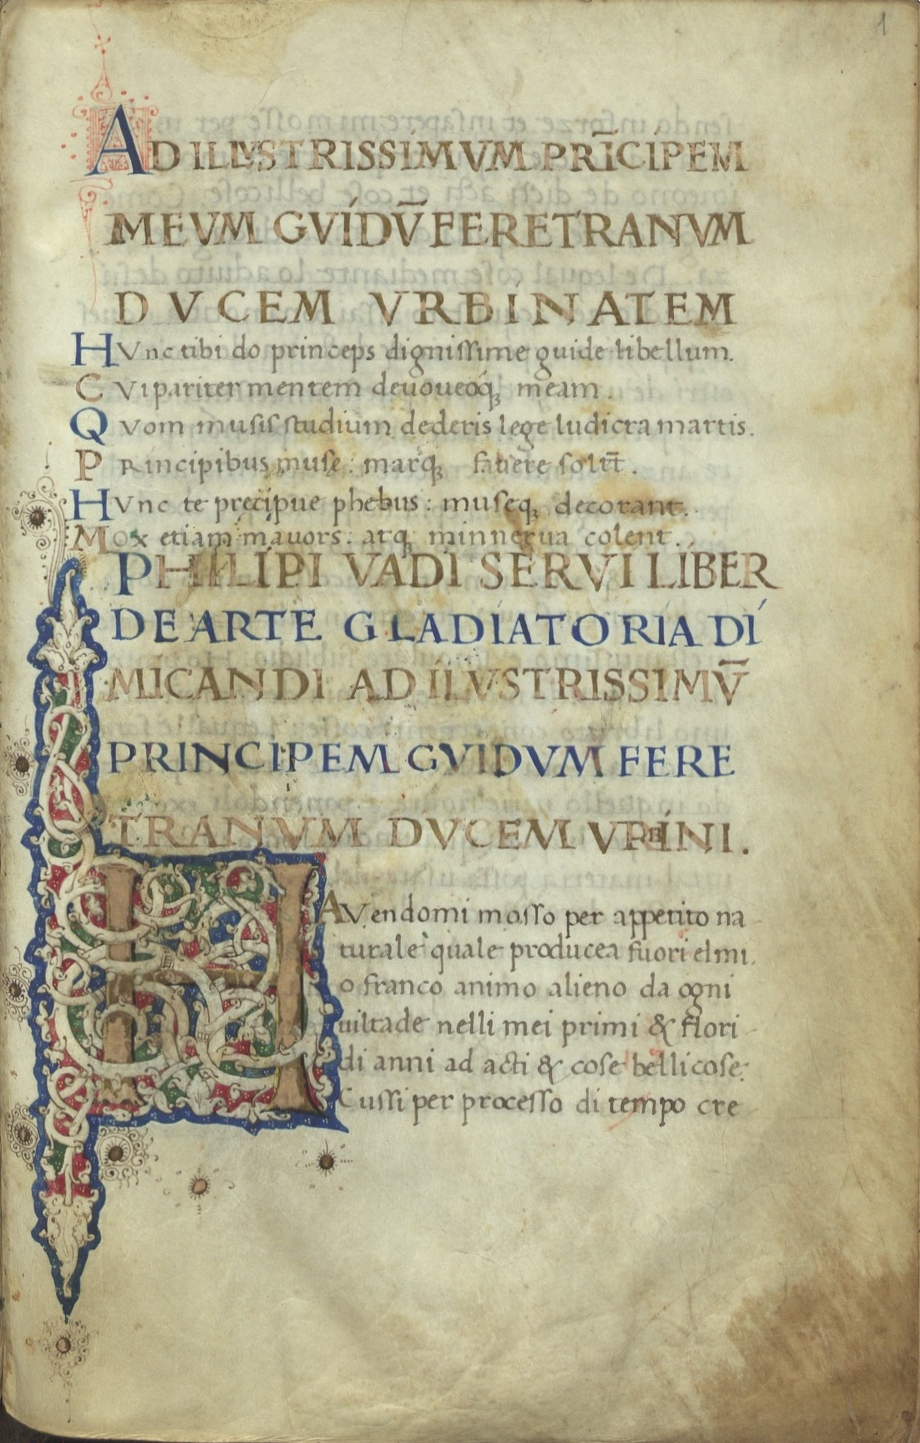 1
AD ILLVSTRISSIMVM PRĪCIPEM
MEVM GVIDV̄ FERETRANVM
DVCEM VRBINATEM
HVnc tibi do princeps dignissime guide libellum.
CVi pariter mentem deuoueoq; meam.
QVom musis studium dederis lege ludicra martis.
PRincipibus muse: marq; fauere solēt.
HVnc te precipue phebus: museq; decorant.
MOx etiam mauors: atq; minnerua colent.
PHILIPI VADI SERVI LIBER
DE ARTE GLADIATORIA DI
MICANDI AD ILVSTRISSIMV̄
PRINCIPEM GVIDVM FERE
TRANVM DVCEM VRBINI.
HAVendomi mosso per appetito na
turale quale producea fuori el mi
o franco animo alieno da ogni
uiltade nelli mei primi & flori
di anni ad acti & cose bellicose:
Cussi per processo di tempo cre